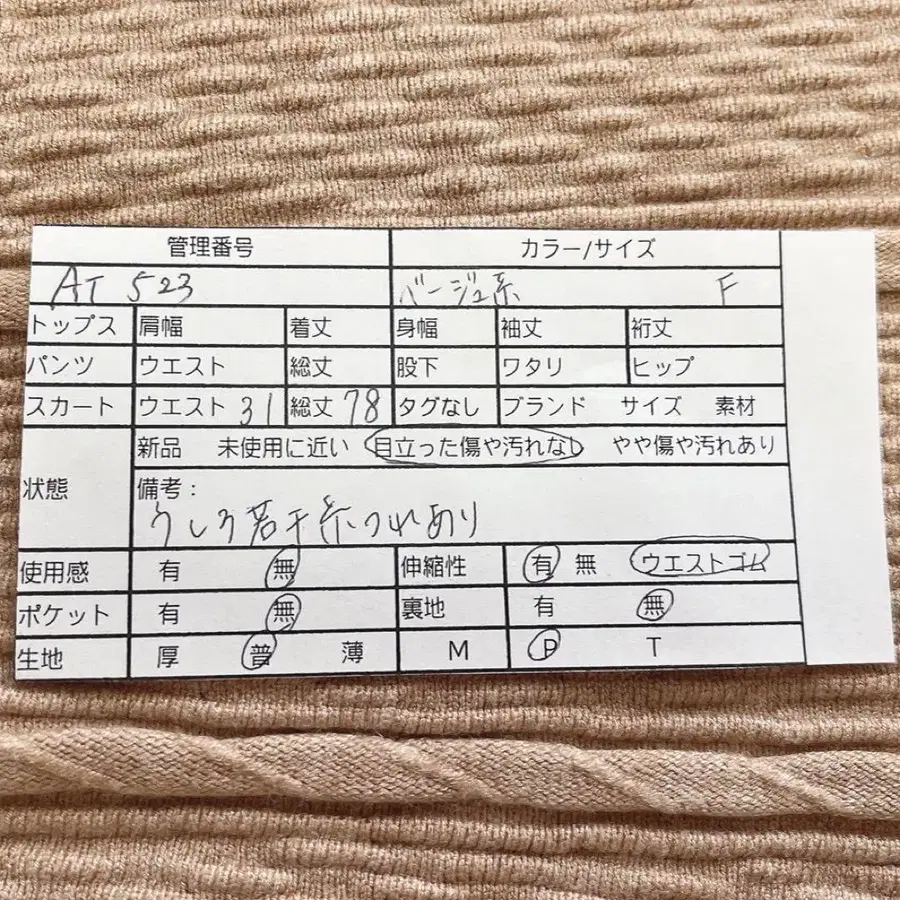 管理番号 カラー/サイズ
AT 523 ベージュ系 F
トップス 肩幅 着丈 身幅 袖丈 裄丈
パンツ ウエスト 総丈 股下 ワタリ ヒップ
スカート ウエスト 31 総丈 78 タグなし ブランド サイズ 素材
状態 新品 未使用に近い 目立った傷や汚れなし やや傷や汚れあり
備考：
うしろ若干糸つれあり
使用感 有 無 伸縮性 有 無 ウエストゴム
ポケット 有 無 裏地 有 無
生地 厚 普 薄 M P T